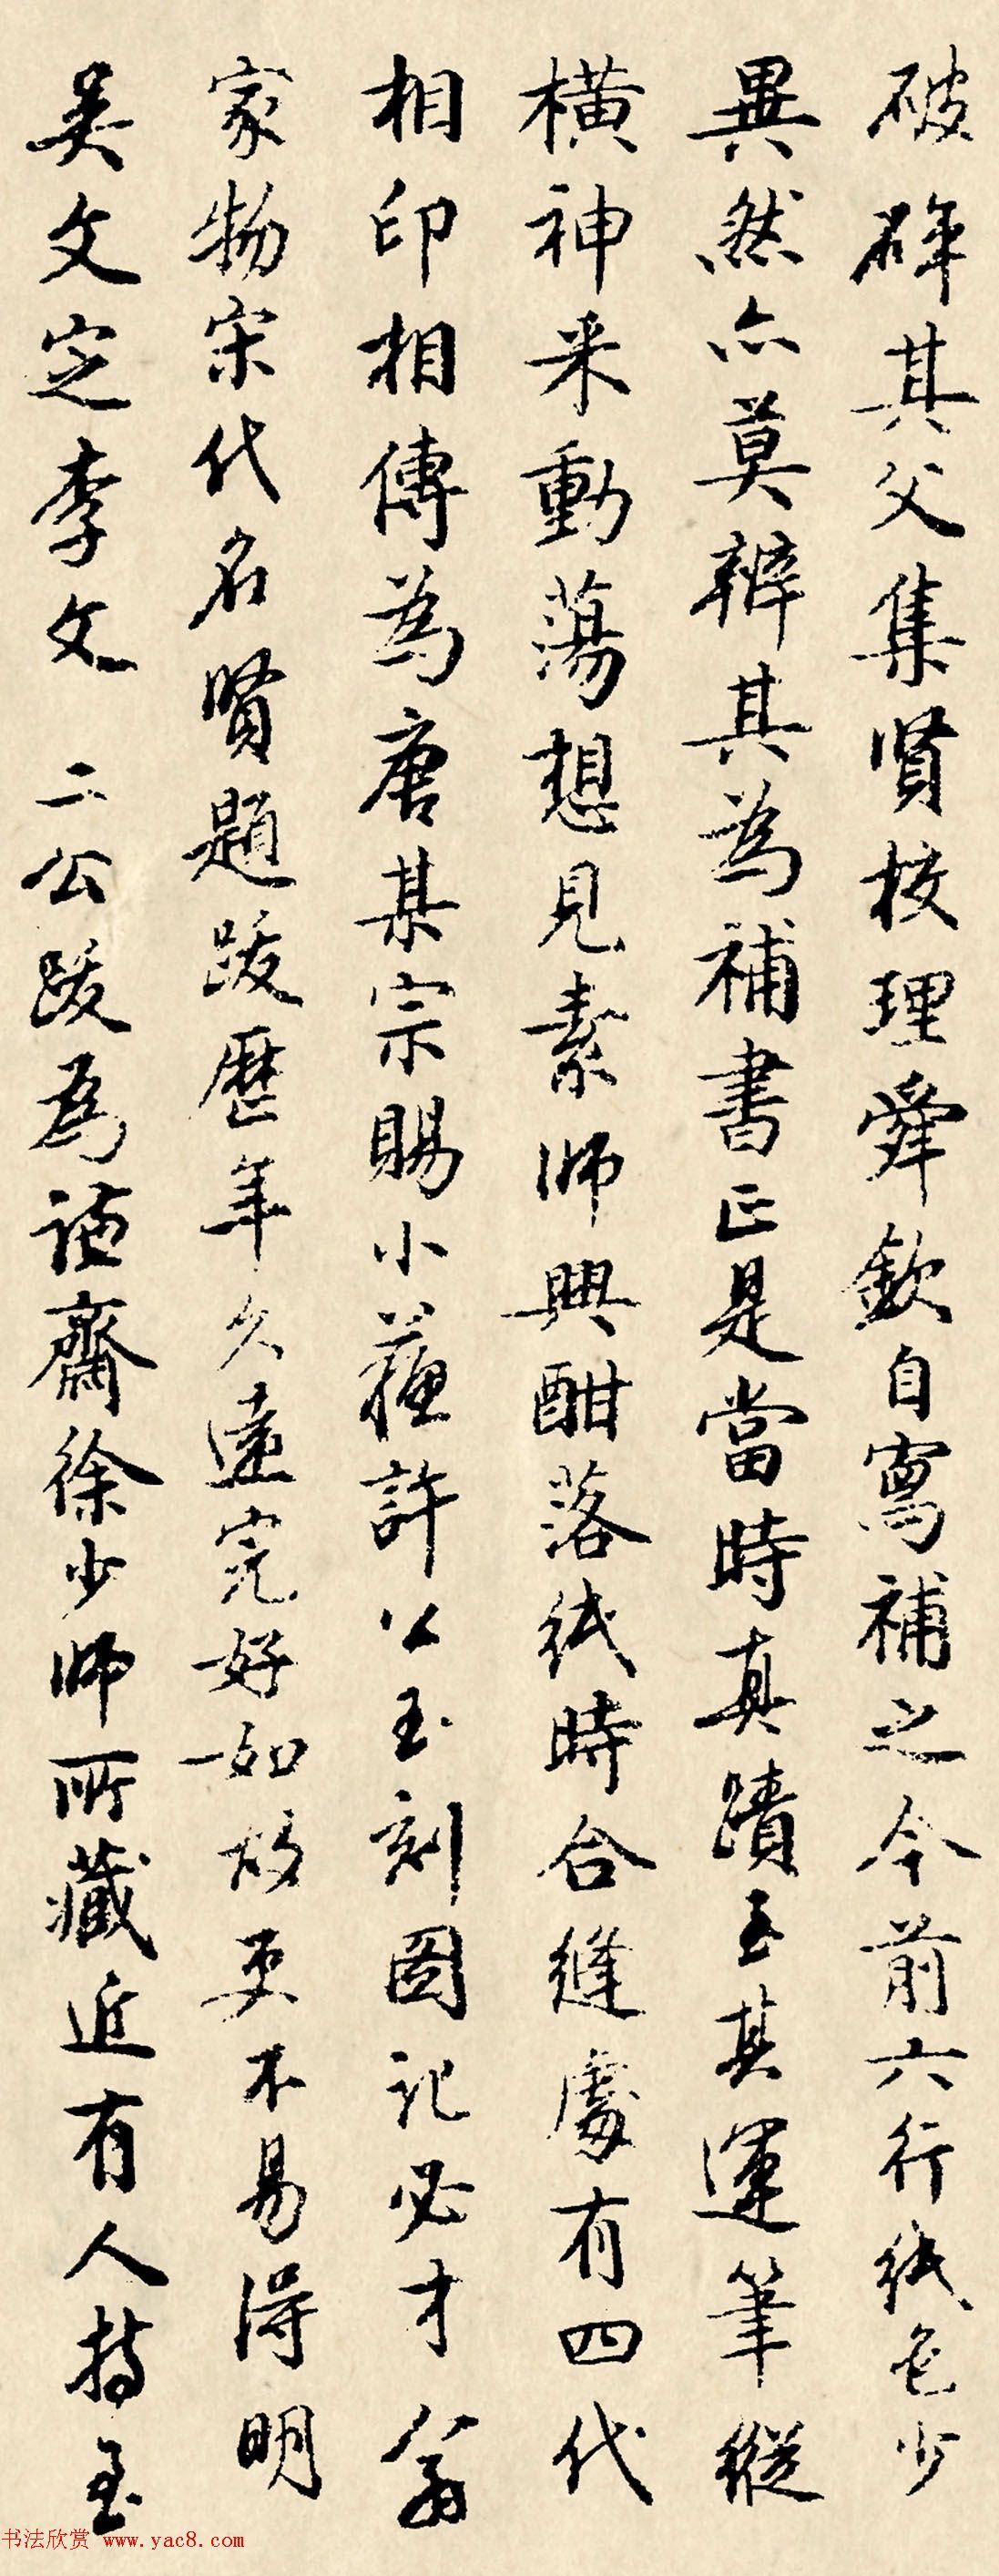 破碎其父集賢校理舜欽自寫補之今前六行紙色少
異然亦莫辨其為補書正是當時真蹟至其運筆縱
橫神采動蕩想見素師興酣落紙時合縫處有四代
相印相傳為唐某宗賜小蘇許公玉刻圖記必才翁
家物宋代名賢題跋歷年久遠完好如故更不易得明
吴文定李文 二公跋為謙齋徐少師所藏近有人持至
书法欣赏 www.yac8.com